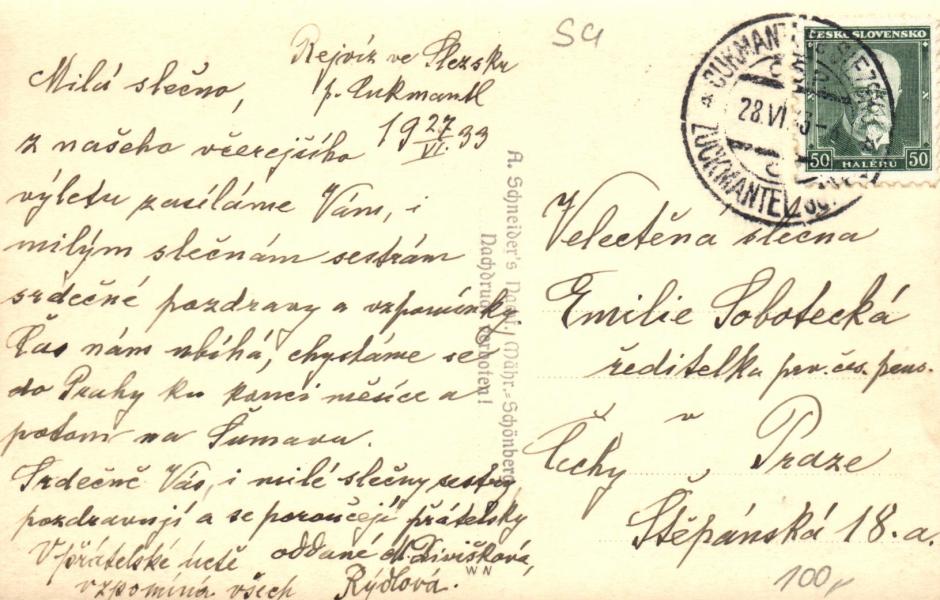 S4
Rejvíz ve Slezsku
p. Cukmantl
19 27/VI 33
Milá slečno,
z našeho včerejšího
výletu zasíláme Vám, i
milým slečnám sestrám
srdečné pozdravy a vzpomínky
Čas nám ubíhá, chystáme se
do Prahy ku konci měsíce a
potom na Šumavu.
Srdečně Vás, i milé slečny sestry
pozdravují a se poroučejí přátelsky
oddané M. Divišková,
Rýdlová.
V přátelské úctě
vzpomíná všech
A. Schneider's Nachf., Mähr.-Schönberg
Nachdruck verboten!
WN
ČESKOSLOVENSKO
50 HALÉRŮ 50
CUKMANTL
28.VI.33-
ZUCKMANTEL
Velectěná slečna
Emilie Sobotecká
ředitelka prv. čes. pens.
v Praze
Čechy,
Štěpánská 18.a.
100,-